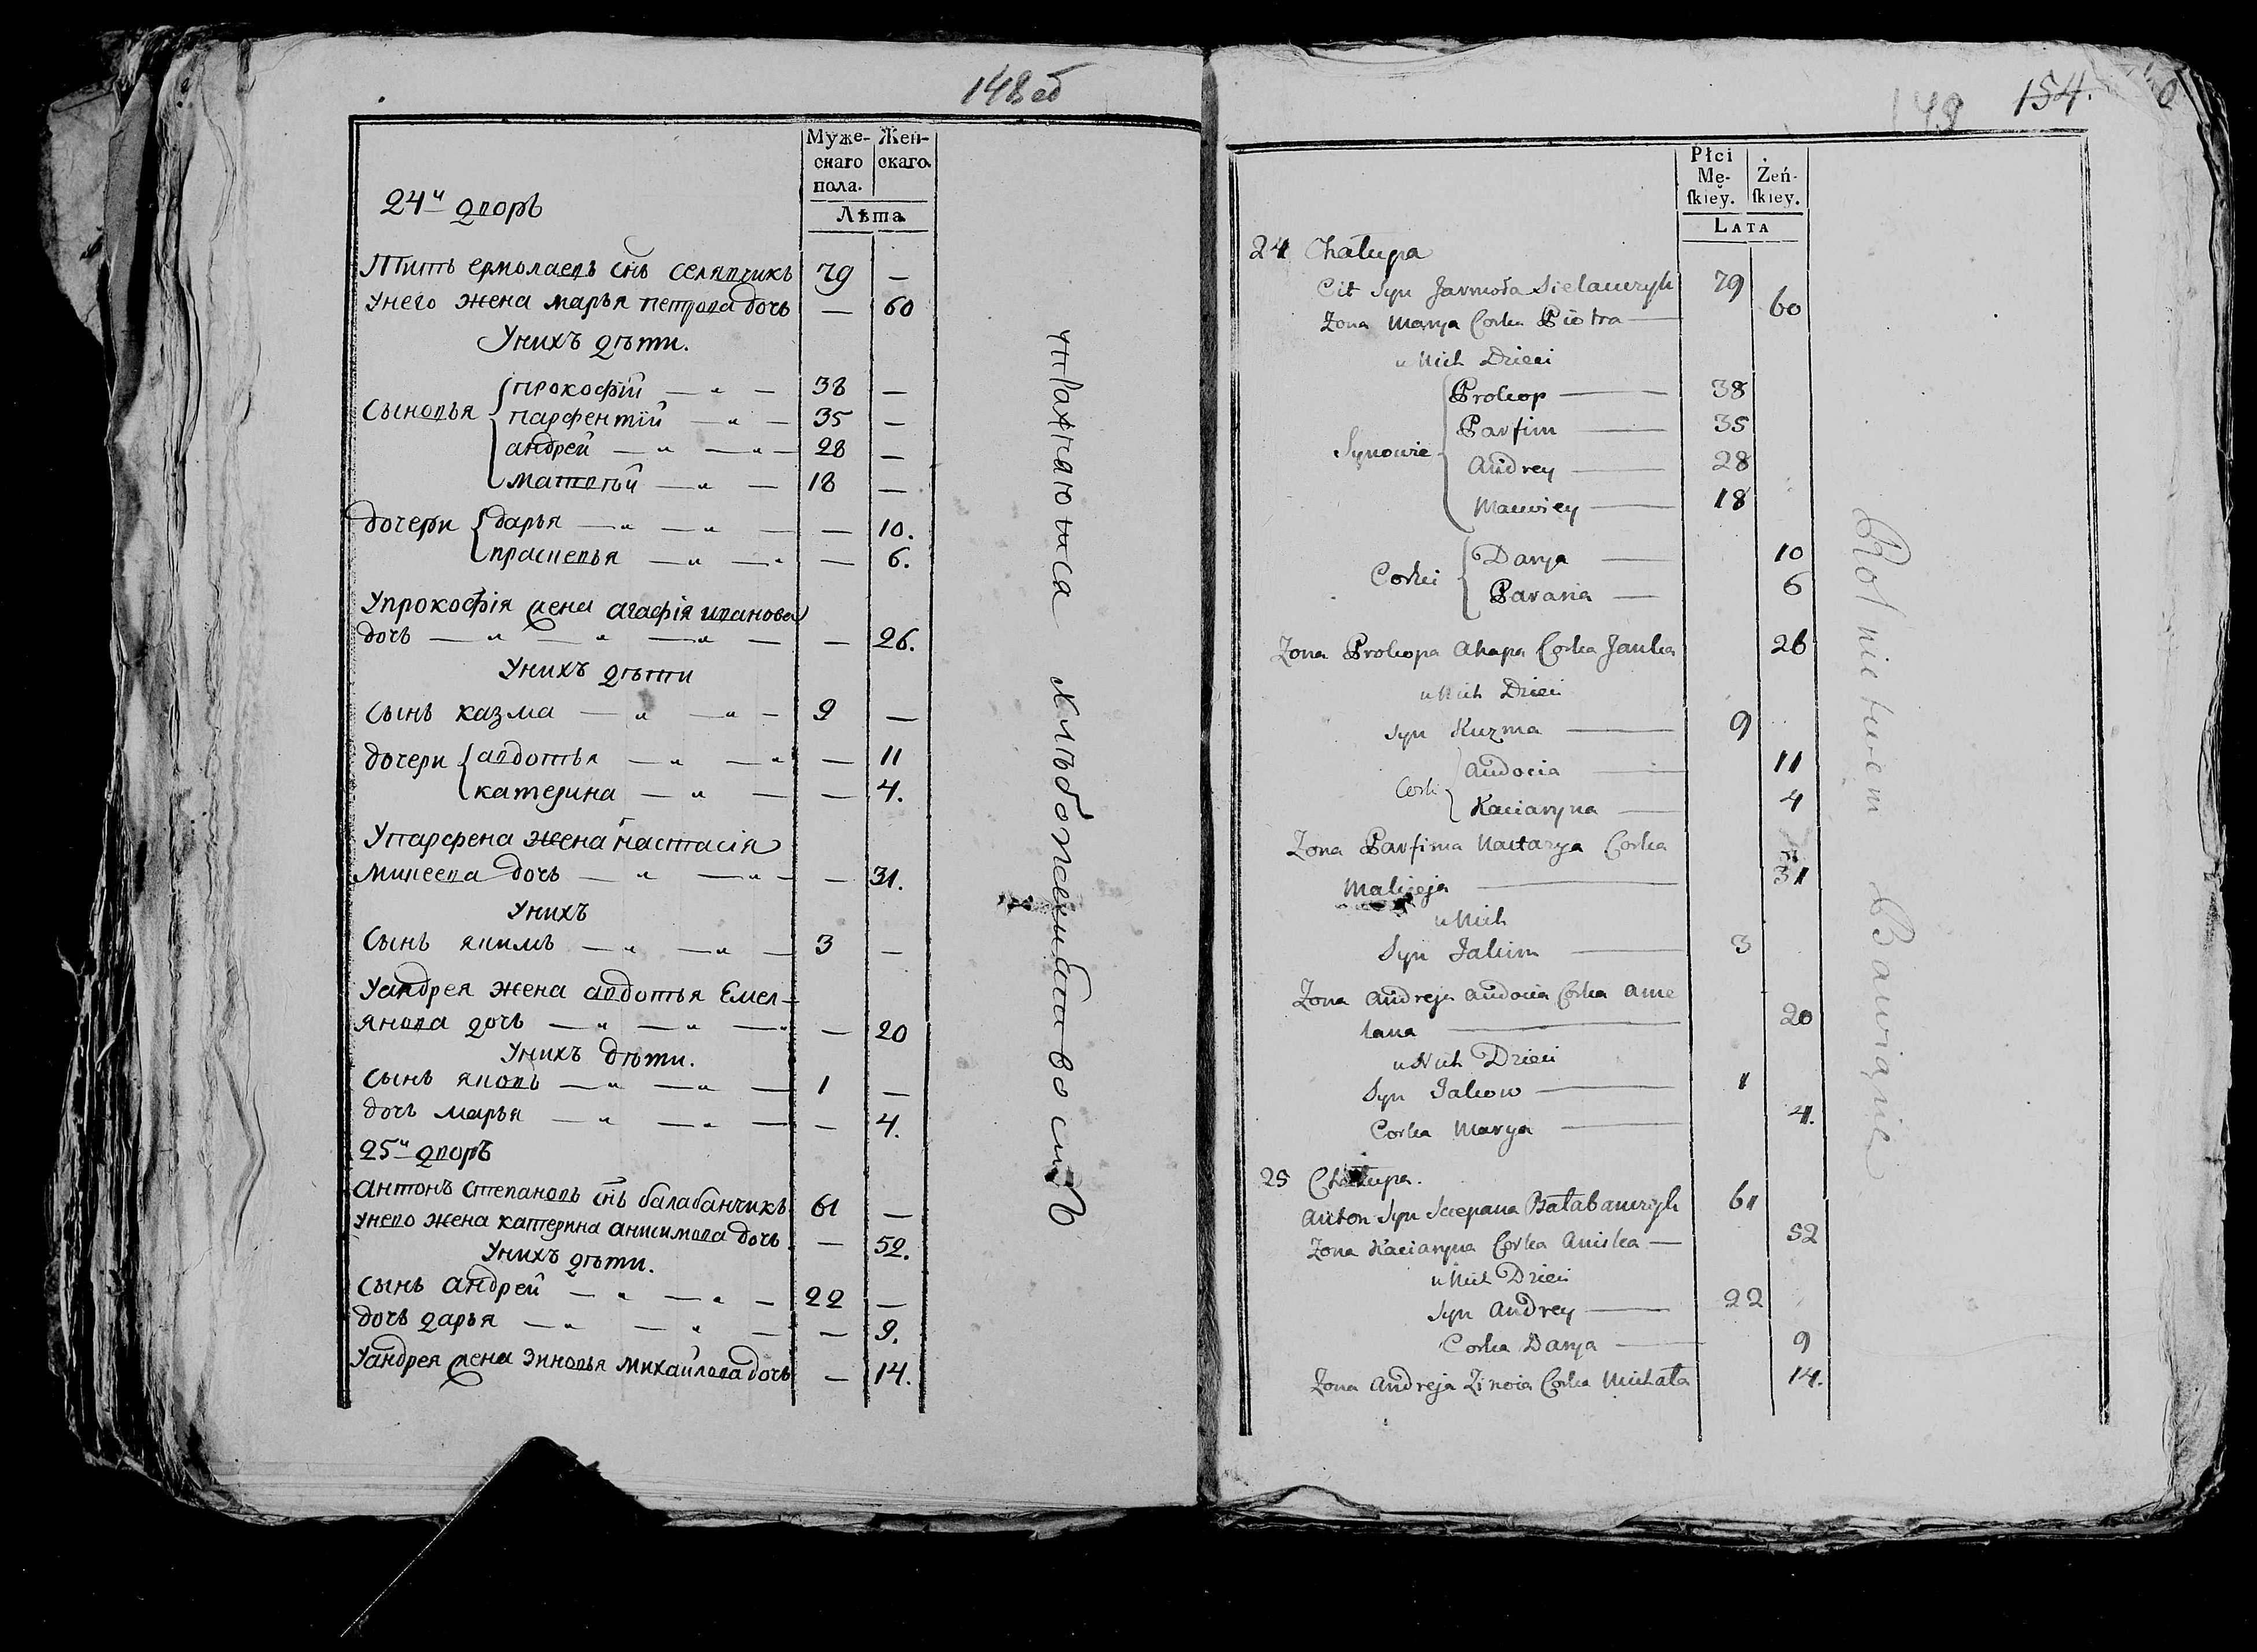 148 об
Муже-
скаго
пола.
Жен-
скаго.
Лѣта
24й дворъ
Титъ ермолаевъ снъ селявчикъ 79 —
Унего жена марья петрова дочь — 60
Унихъ дѣти.
Сыновья
прокофій — „ — 38 —
парфентій — „ — 35 —
андрей — „ — „ — 28 —
Матвѣй — „ — 18 —
дочери
дарья — „ — „ — — 10.
прасковья — „ — „ — 6.
Упрокофія жена агафія иванова
дочь — „ — „ — „ — — 26.
Унихъ дѣти
Сынъ казма — „ — „ — 9 —
дочери
авдотья — „ — „ — 11
катерина — „ — — 4.
Упарфена жена настасія
минеева дочь — „ — „ — — 31.
Унихъ
Сынъ якимъ — „ — „ — 3 —
Уандрея жена авдотья Емел-
янова дочь — „ — „ — „ — 20
Унихъ дѣти.
Сынъ яковъ — „ — „ — 1 —
дочь марья — „ — „ — — 4.
25й дворъ
Антонъ степановъ снъ балабанчикъ 61 —
унего жена катерина анисимова дочь — 52.
Унихъ дѣти.
Сынъ андрей — „ — „ — 22 —
дочь дарья — „ — „ — — 9.
Уандрея жена зиновья михайлова дочь — 14.
упражняютса хлѣбопашествомъ
149
154.
Płci
Mę-
skiey.
Żeń-
skiey.
LATA
24 Chałupa
Cit Syn Jarmoła Sielawczyk 79
Zona Marya Corka Piotra — 60
u Nich Dzieci
Synowie
Prokop — 38
Parfim — 35
Andrey — 28
Maciviey — 18
Corki
Darya — 10
Parasia — 6
Zona Prokopa Ahapa Corka Janka 26
u Nich Dzieci
Syn Kuzma — 9
Cork
Audocia — 11
Kaciaryna — 4
Zona Parfima Nastazya Corka
Makieja — 31
u Nich
Syn Jakim — 3
Zona Andreja Audocia Corka Ame
lana — 20
u Nich Dzieci
Syn Jakow — 1
Corka Marya — 4.
25 Chałupa.
Anton Syn Sciepana Bałabanczyk 61
Zona Kaciaryna Corka Aniska — 52
u Nich Dzieci
Syn Andrey — 22
Corka Darya — 9
Zona Andreja Zinoia Corka Michała 14.
Rolnictwem Bawiąsię